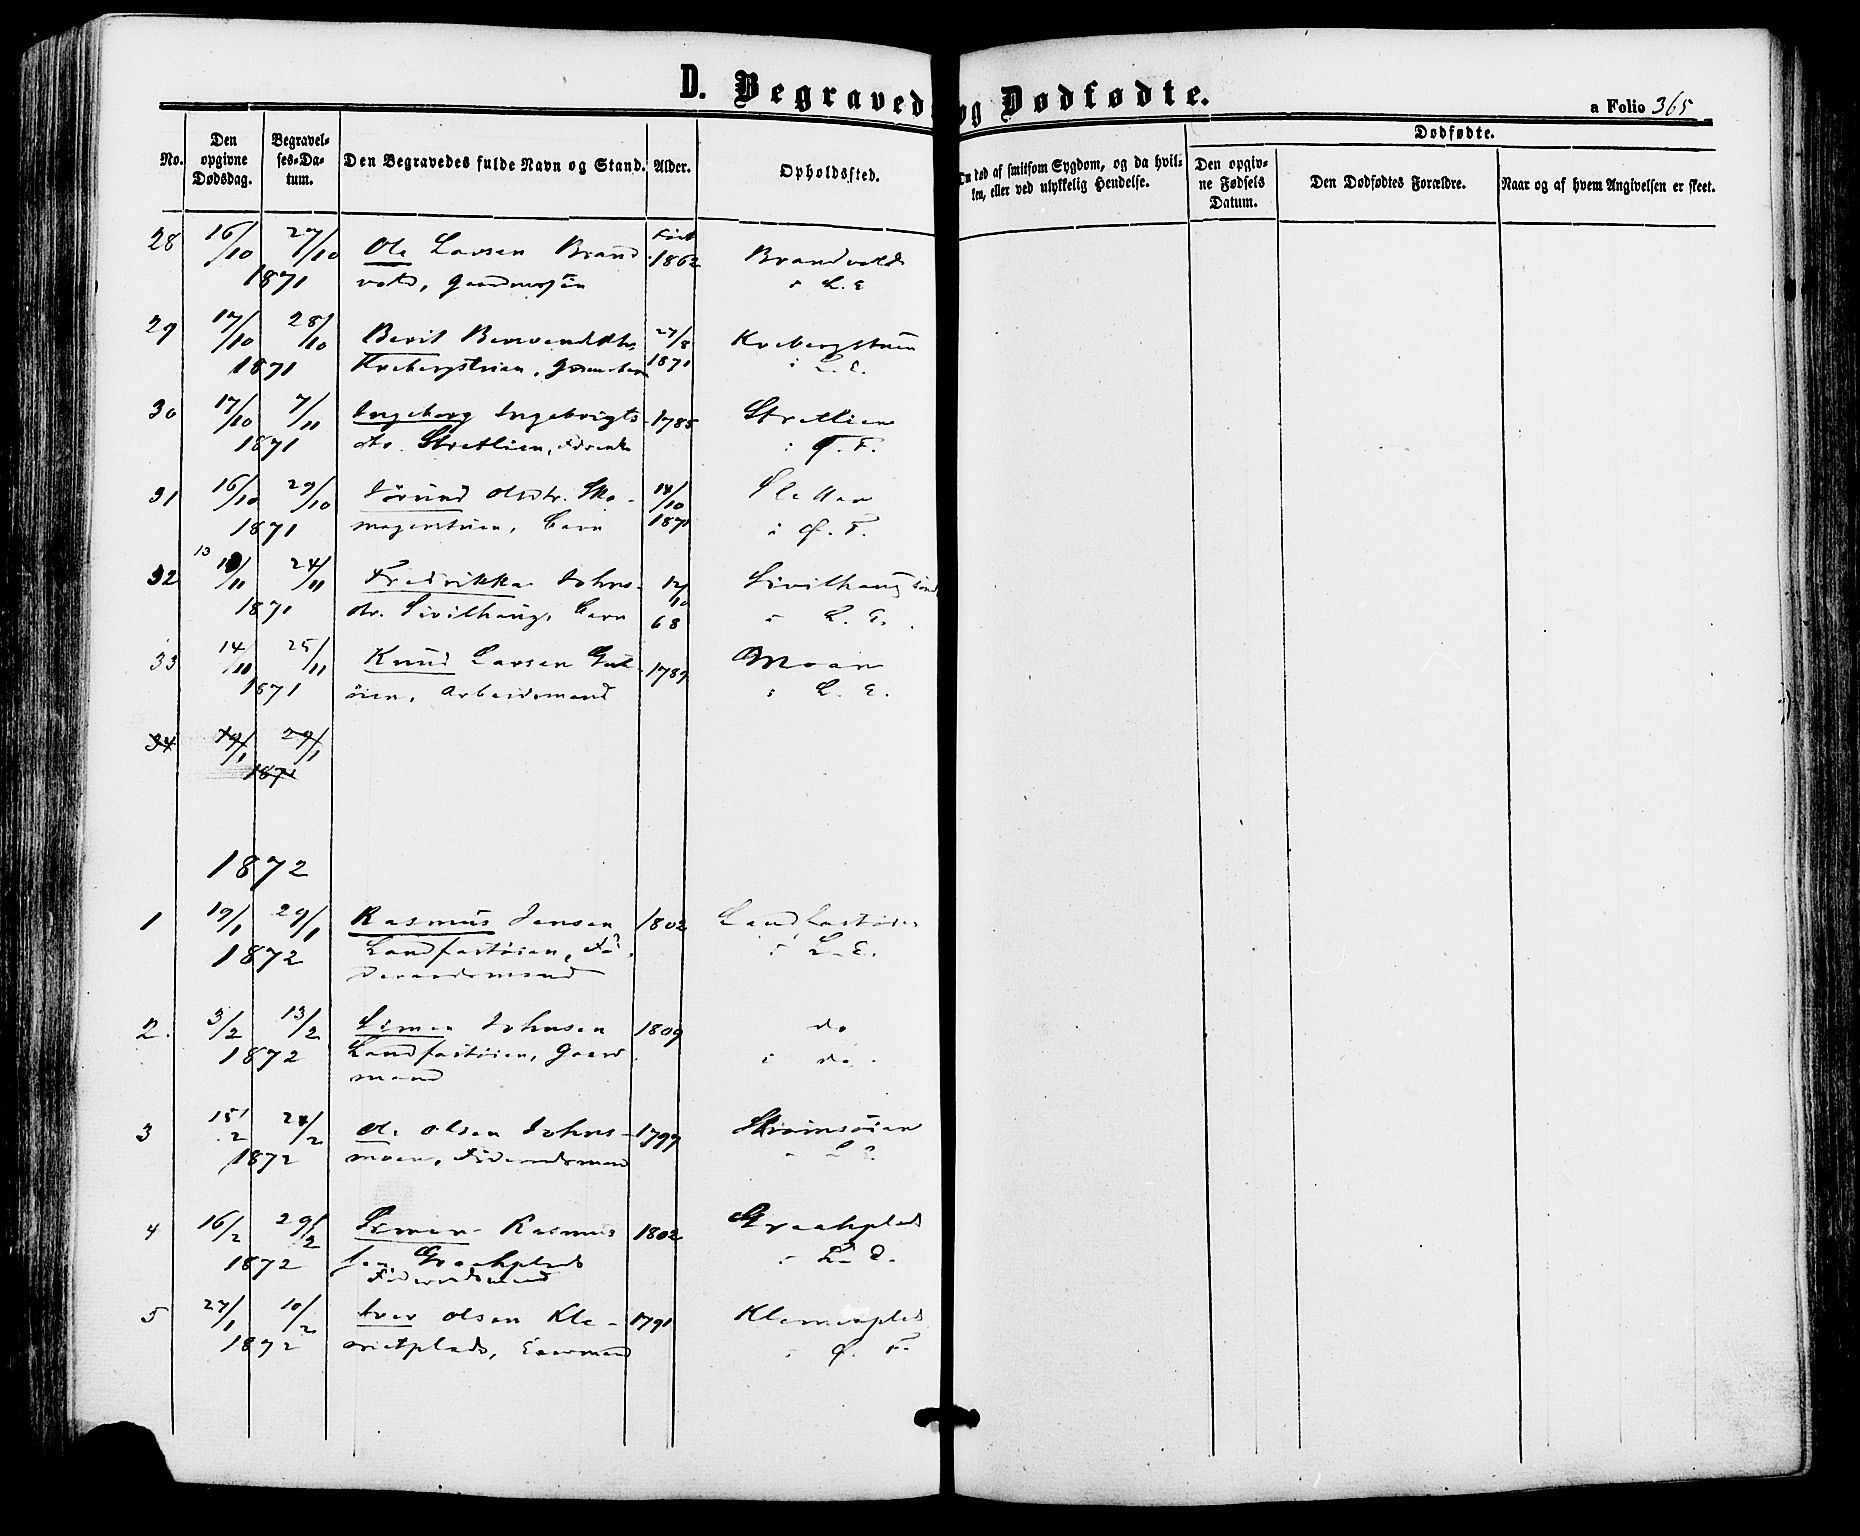 D. Begravede og Dødfødte.
a Folio 365
No.
Den opgivne Dødsdag.
Begravelses-Datum.
Den Begravedes fulde Navn og Stand.
Alder.
Opholdssted.
Om død af smitsom Sygdom, og da hvilken, eller ved ulykkelig Hendelse.
Dødfødte.
Den opgivne Fødsels Datum.
Den Dødfødtes Forældre.
Naar og af hvem Angivelsen er skeet.
28 16/10 27/10 Ole Larsen Brand Født 1862 Brandvold
1871 vold, i L. E
29 17/10 28/10 Berit 27/8 1871
1871 i L. E.
30 17/10 7/11 Ingeborg Ingebrigts 1785 Stretlien
1871 dtr. Stretlien, i Q. F.
31 16/10 29/10 Jörund Olsdtr. Sko- 14/10 1871 Sletten
1871 magerstuen, Barn i Q. F.
32 13/11 24/11 Fredrikke Johns- 12/10 68 Sivilhaug
1871 dtr. Sivilhaug, Barn i L. E.
33 14/11 25/11 Knud Larsen 1789 Moan
1871 öien, Arbeidsmand i L. E.
34 19/1 29/1
1871
1872
1 19/1 29/1 Rasmus Jansen 1802 Landfastöien
1872 Landfastöien, Fö- i L. E.
deraadsmand
2. 3/2 13/2 Simen Johnsen 1809 do
1872 Landfastöien, Gaard i do.
mand
3 15/2 24/2 Ole Olsen Johns- 1799
1872 moen, Föderaadsmand i L E.
4 16/2 29/2 Simen Rasmus 1802 Graahplads
1872 sen Graahplads i L. E.
Föderaadsmand
5 27/1 10/2 Iver Olsen Kle- 1791
1872 i Q. F.